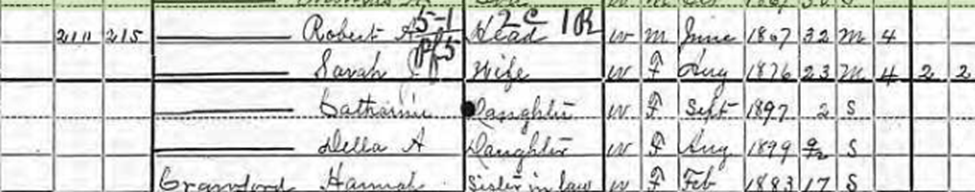 211 215 —— Robert A 5-1 Head 2C 1B W M June 1867 32 M 4
—— Sarah Wife W F Aug 1876 23 M 4 2 2
—— Catharine Daughter W F Sept 1897 2 S
—— Della A Daughter W F Aug 1899 9/12 S
Crawford Hannah Sister in law W F Feb 1883 17 S